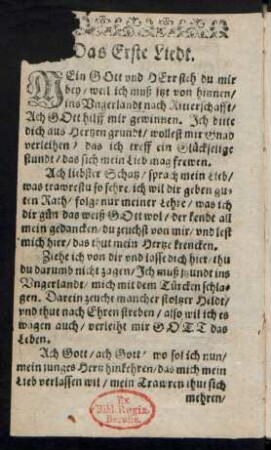 Das Erste Liedt.
MEin GOtt vnd HErr steh du mir
bey / weil ich muß itzt von hinnen /
ins Vngerlandt nach Ritterschafft /
Ach GOtt hilff mir gewinnen. Ich bitte
dich aus Hertzen grundt / wollest mir Gnad
verleihen / das ich treff ein Glückselige
stundt / das sich mein Lieb mag frewen.
Ach liebster Schatz / sprach mein Lieb /
was trawrestu so sehre, ich wil dir geben gu-
ten Rath / folge nur meiner Lehre / was ich
dir gün das weiß GOtt wol / der kende all
mein gedancken / du zeuchst von mir / vnd lest
mich hier / das thut mein Hertze krencken.
Ziehe ich von dir vnd lasse dich hier / thu
du darumb nicht zagen / Ich muß itzundt ins
Vngerlandt / mich mit dem Türcken schla-
gen. Darein zeucht mancher stoltzer Heldt /
vnd thut nach Ehren streben / also wil ich es
wagen auch / verleiht mir GOTT das
Leben.
Ach Gott / ach Gott / wo sol ich nun /
mein junges Hertz hinkehren / das mich mein
Lieb verlassen wil / mein Trawren thut sich
mehren /
Ex
Bibl. Regia
Berolin.